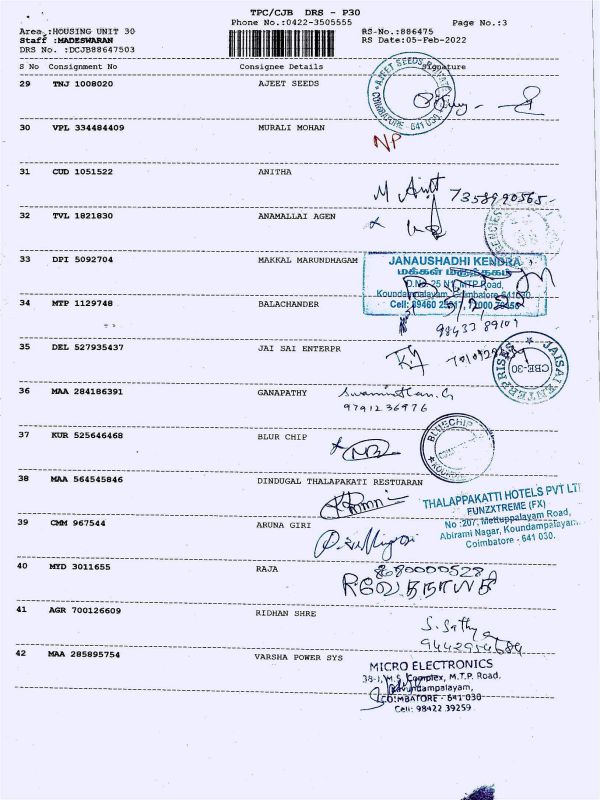 TPC/CJB DRS - P30
Phone No.:0422-3505555 Page No.:3
Area :HOUSING UNIT 30 RS-No.:886475
Staff :MADESWARAN RS Date:05-Feb-2022
DRS No. :DCJB88647503
S No Consignment No Consignee Details Signature
29 TNJ 1008020 AJEET SEEDS
AJEET SEEDS PRIVATE
COIMBATORE - 641 030
30 VPL 334484409 MURALI MOHAN
NP
31 CUD 1051522 ANITHA
7358990565
32 TVL 1821830 ANAMALLAI AGEN
33 DPI 5092704 MAKKAL MARUNDHAGAM
JANAUSHADHI KENDRA
மக்கள் மருந்தகம்
Road,
Koundampalayam, Coimbatore-641030
Cell:
34 MTP 1129748 BALACHANDER
98433 89107
35 DEL 527935437 JAI SAI ENTERPR
JAISAI ENTERPRISES
CBE-30
36 MAA 284186391 GANAPATHY
9791236976
37 KUR 525646468 BLUR CHIP
BLUECHIP
38 MAA 564545846 DINDUGAL THALAPAKATI RESTUARAN
THALAPPAKATTI HOTELS PVT LT
FUNZXTREME (FX)
No :207, Mettuppalayam Road,
Abirami Nagar, Koundampalayam,
Coimbatore - 641 030.
39 CMM 967544 ARUNA GIRI
40 MYD 3011655 RAJA
41 AGR 700126609 RIDHAN SHRE
S. Sathya
42 MAA 285895754 VARSHA POWER SYS
MICRO ELECTRONICS
38-I, M.S. Complex, M.T.P. Road,
Kavundampalayam,
COIMBATORE - 641 030
Cell: 98422 39259